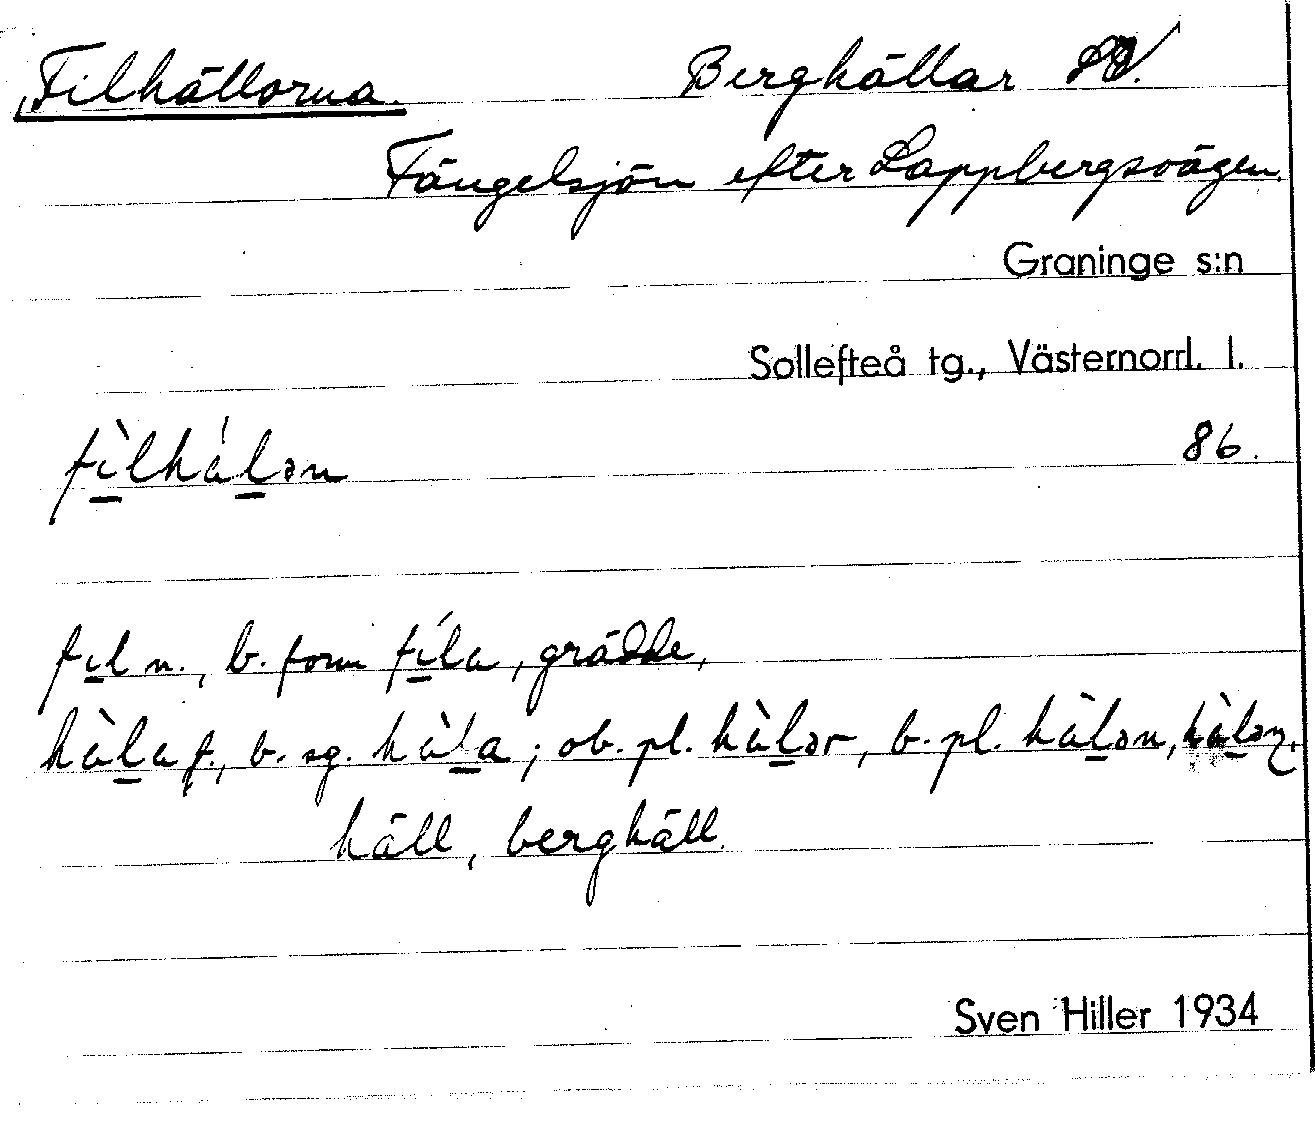 Filhällorna. Berghällar SV.
Fängelsjön efter Lappbergsvägen.
Graninge s:n
Sollefteå tg., Västernorrl. l.
fìlháḷən 86.
fil n., b. form fíla, grädde,
hàla f., b. sg. hàla; ob. pl. hàlər, b. pl. hàlən, hàləɳ.
häll, berghäll.
Sven Hiller 1934